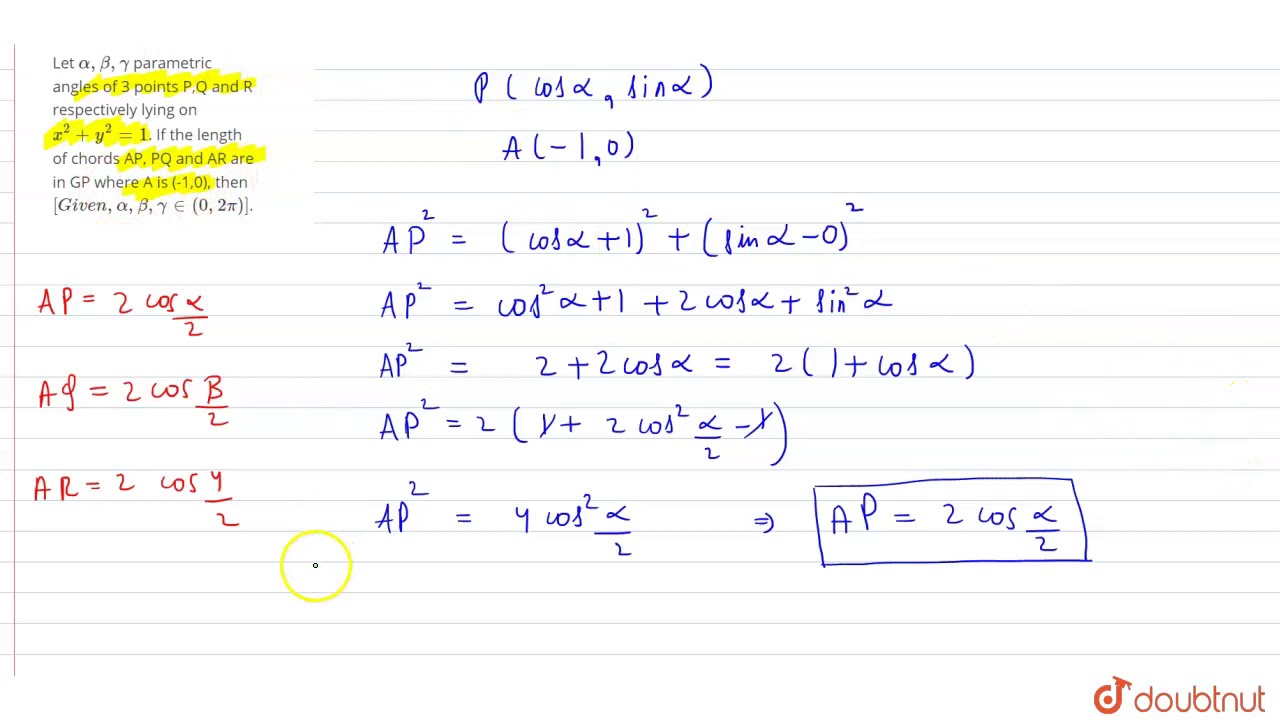 Let α, β, γ parametric
angles of 3 points P,Q and R
respectively lying on
x² + y² = 1. If the length
of chords AP, PQ and AR are
in GP where A is (-1,0), then
[Given, α, β, γ ∈ (0, 2π)].
P ( cosα , sinα )
A ( -1, 0 )
AP² = (cosα + 1)² + (sinα - 0)²
AP² = cos²α + 1 + 2 cosα + sin²α
AP² = 2 + 2 cosα = 2 ( 1 + cosα )
AP² = 2 ( 1 + 2 cos² α/2 - 1 )
AP² = 4 cos² α/2 ⇒ AP = 2 cos α/2
AP = 2 cos α/2
AQ = 2 cos β/2
AR = 2 cos γ/2
doubtnut